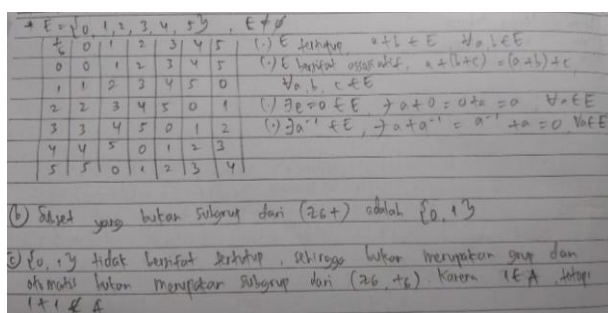 * E = {0, 1, 2, 3, 4, 5} , E ≠ ∅
+6 | 0 | 1 | 2 | 3 | 4 | 5
0 | 0 | 1 | 2 | 3 | 4 | 5
1 | 1 | 2 | 3 | 4 | 5 | 0
2 | 2 | 3 | 4 | 5 | 0 | 1
3 | 3 | 4 | 5 | 0 | 1 | 2
4 | 4 | 5 | 0 | 1 | 2 | 3
5 | 5 | 0 | 1 | 2 | 3 | 4
(·) E tertutup, a+b ∈ E, ∀a,b ∈ E
(·) E bersifat assosiatif, a+(b+c) = (a+b)+c,
∀a, b, c ∈ E
(·) ∃e=0 ∈ E, ∋ a+0 = 0+a = a ∀a ∈ E
(·) ∃a⁻¹ ∈ E, ∋ a+a⁻¹ = a⁻¹+a = 0, ∀a ∈ E
(b) Subset yang bukan subgrup dari (Z6+) adalah {0, 1}
(c) {0, 1} tidak bersifat tertutup, sehingga bukan merupakan grup dan
otomatis bukan merupakan subgrup dari (Z6, +6). Karena 1 ∈ A, tetapi
1+1 ∉ A